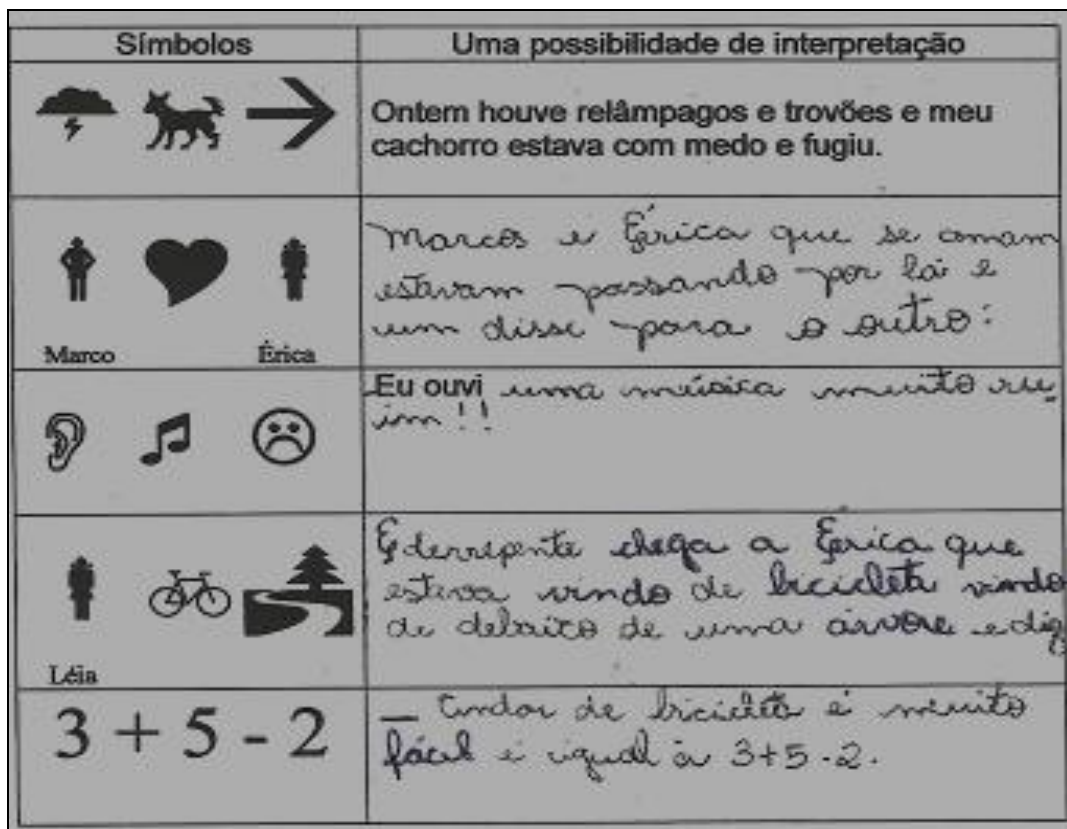 Símbolos
Uma possibilidade de interpretação
Ontem houve relâmpagos e trovões e meu
cachorro estava com medo e fugiu.
Marco
Érica
Marcos e Érica que se amam
estavam passando por lá e
um disse para o outro:
Eu ouvi uma música muito ru
im!!
Léia
E derrepente chega a Érica que
estava vindo de bicicleta vindo
de debaixo de uma árvore e diz
3 + 5 - 2
— Andar de bicicleta é muito
fácil é igual à 3+5-2.